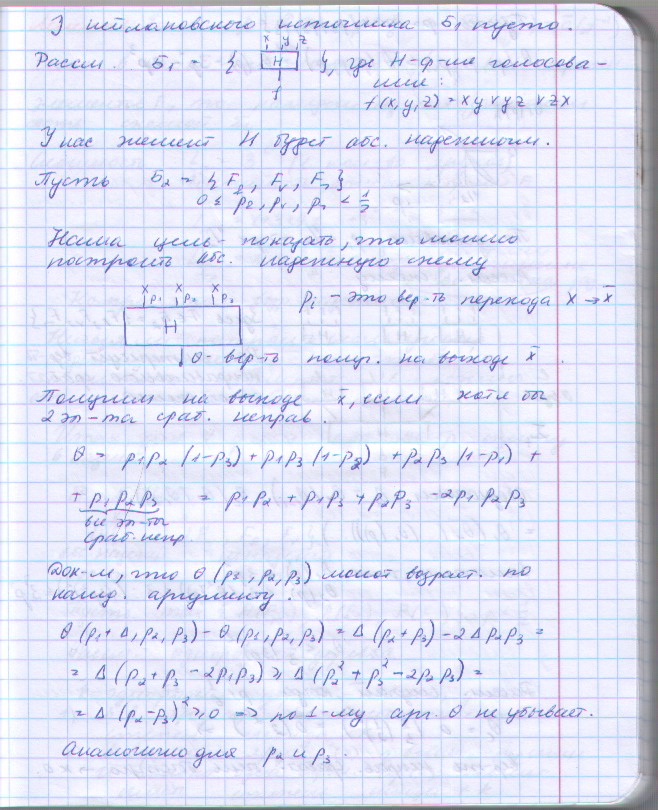 У неймановского источника Б₁ пусто.
Рассм. Б₁ = { x y z H f }, где H-ф-ия голосова-
ния:
f(x,y,z) = xy ∨ yz ∨ zx
У нас элемент H будет абс. надежным.
Пусть Б₂ = { F&, F∨, F¬ }
0 ≤ p&, p∨, p¬ < 1/2
Наша цель - показать, что можно
построить абс. надежную схему
x p₁ x p₂ x p₃
H
pᵢ - это вер-ть перехода x → x̄
θ - вер-ть получ. на выходе x̄.
Получим на выходе x̄, если хотя бы
2 эл-та сраб. неправ.
θ = p₁p₂(1-p₃) + p₁p₃(1-p₂) + p₂p₃(1-p₁) +
+ p₁p₂p₃ = p₁p₂ + p₁p₃ + p₂p₃ - 2p₁p₂p₃
все эл-ты
сраб. непр
Док-м, что θ(p₁, p₂, p₃) монот возраст. по
кажд. аргументу.
θ(p₁+Δ, p₂, p₃) - θ(p₁, p₂, p₃) = Δ(p₂+p₃) - 2Δp₂p₃ =
= Δ(p₂ + p₃ - 2p₂p₃) ≥ Δ(p₂² + p₃² - 2p₂p₃) =
= Δ(p₂-p₃)² ≥ 0 ⇒ по 1-му арг. θ не убывает.
Аналогично для p₂ и p₃.